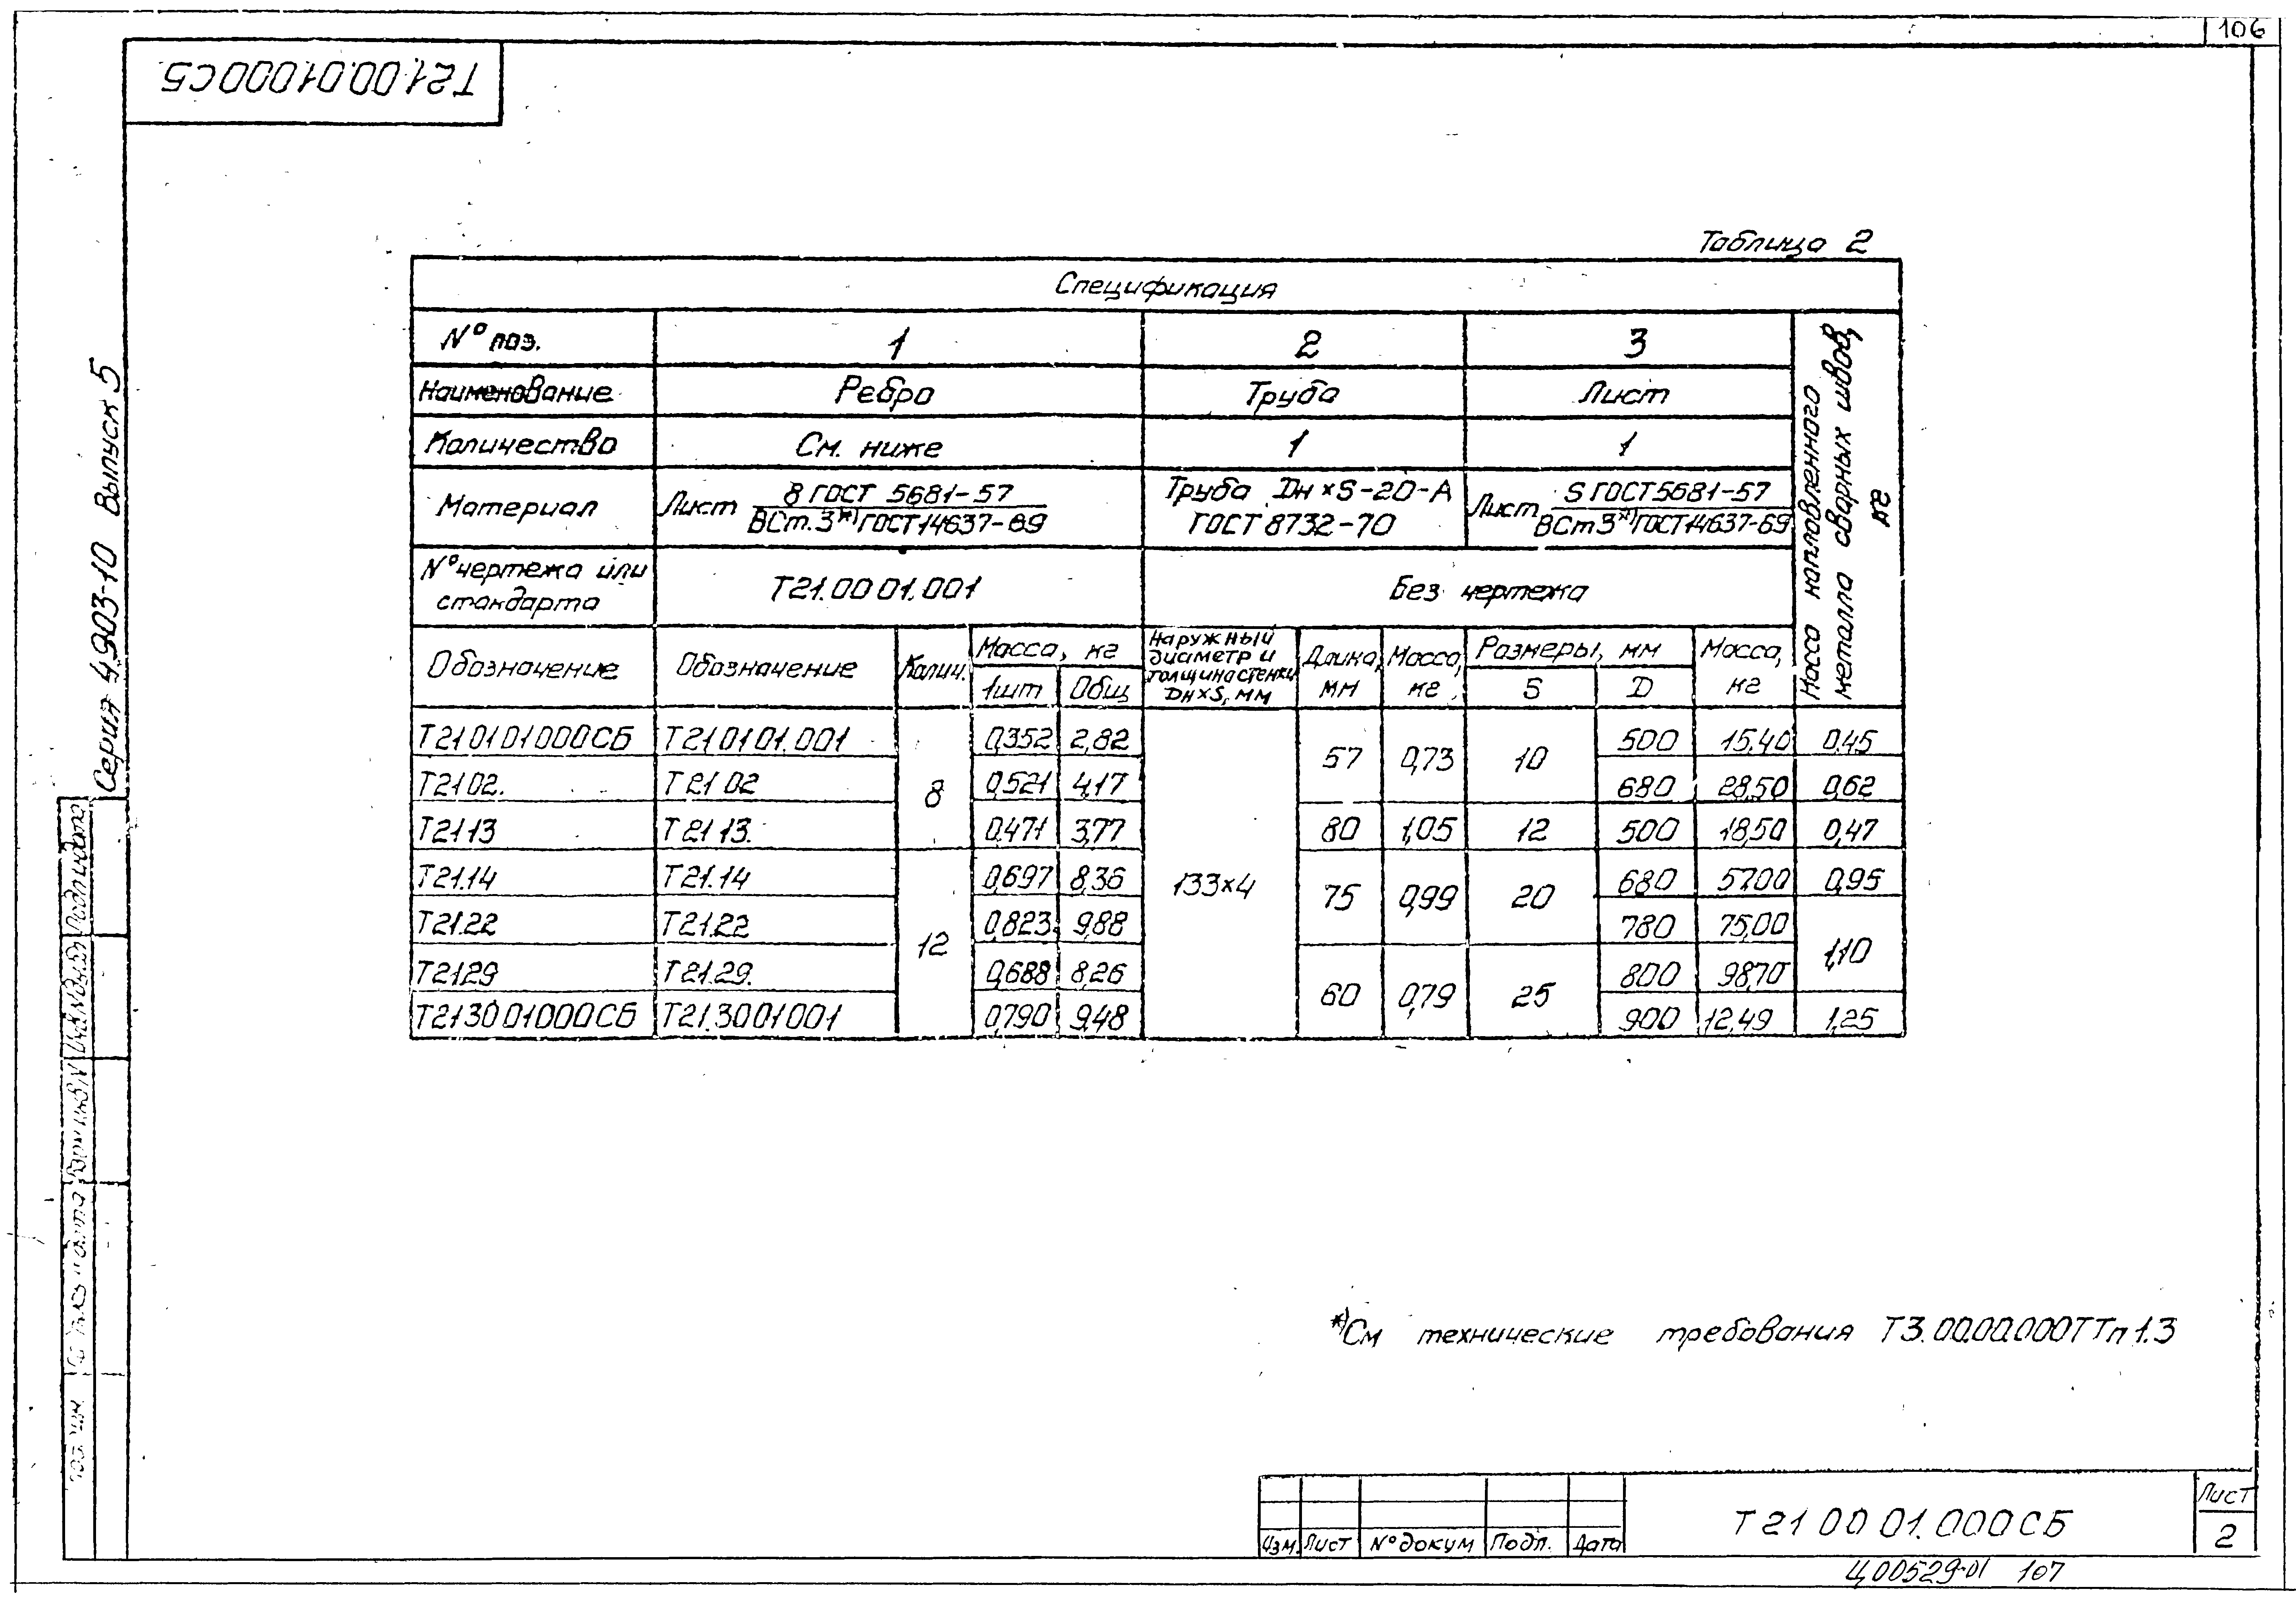 106
Т21.00.01.000СБ
Серия 4.903-10 Выпуск 5
Таблица 2
Спецификация
№ поз. 1 2 3
Масса наплавленного металла сварных швов, кг
Наименование Ребро Труба Лист
Количество См. ниже 1 1
Материал Лист 8 ГОСТ 5681-57 / ВСт.3*) ГОСТ 14637-69 Труба Дн×S-20-А ГОСТ 8732-70 Лист S ГОСТ 5681-57 / ВСт3*) ГОСТ 14637-69
№ чертежа или стандарта Т21.00 01.001 Без чертежа
Обозначение Обозначение Колич. Масса, кг Наружный диаметр и толщина стенки Дн×S, мм Длина, мм Масса, кг Размеры, мм Масса, кг
1шт Общ S D
Т21 01 01 000СБ Т21 01 01.001 8 0,352 2,82 133×4 57 0,73 10 500 15,40 0,45
Т21 02. Т21 02 0,521 4,17 680 28,50 0,62
Т21 13 Т21 13. 0,471 3,77 80 1,05 12 500 18,50 0,47
Т21.14 Т21.14 12 0,697 8,36 75 0,99 20 680 57,00 0,95
Т21.22 Т21.22 0,823 9,88 780 75,00 1,10
Т21.29 Т21.29. 0,688 8,26 60 0,79 25 800 98,70
Т21 30 01 000СБ Т21.30 01 001 0,790 9,48 900 12,49 1,25
*) См технические требования Т3.00.00.000ТТ п 1.3
Подп и дата
Изм. Лист № докум Подп. Дата
Т21 00 01.000СБ
Лист
2
Ц00529-01 107